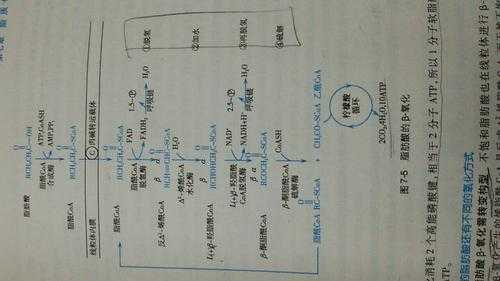 ①脱氢
②加水
③再脱氢
④硫解
脂肪酸
RCH₂CH₂C—OH
ATP,CoASH
AMP,PPi
脂酰CoA
合成酶
RCH₂CH₂C~SCoA
脂酰CoA
线粒体内膜
肉碱转运载体
RCH₂CH₂C~SCoA
脂酰CoA
FAD
FADH₂
1.5~Ⓟ
呼吸链
H₂O
脂酰CoA
脱氢酶
反Δ²-烯酰CoA
H₂O
Δ²-烯酰CoA
水化酶
L(+)β-羟脂酰CoA
NAD⁺
NADH+H⁺
2.5~Ⓟ
呼吸链
H₂O
L(+)β-羟脂酰
CoA脱氢酶
β-酮脂酰CoA
CoASH
β-酮脂酰CoA
硫解酶
脂酰CoA RC~SCoA
CH₃CO~SCoA 乙酰CoA
柠檬酸
循环
2CO₂,4H₂O,10ATP
图 7-5 脂肪酸的 β-氧化
消耗 2 个高能磷酸键,相当于 2 分子 ATP,所以 1 分子软脂
ATP。
的脂肪酸还有不同的氧化方式
肪酸 β-氧化需转变构型 不饱和脂肪酸也在线粒体进行 β-